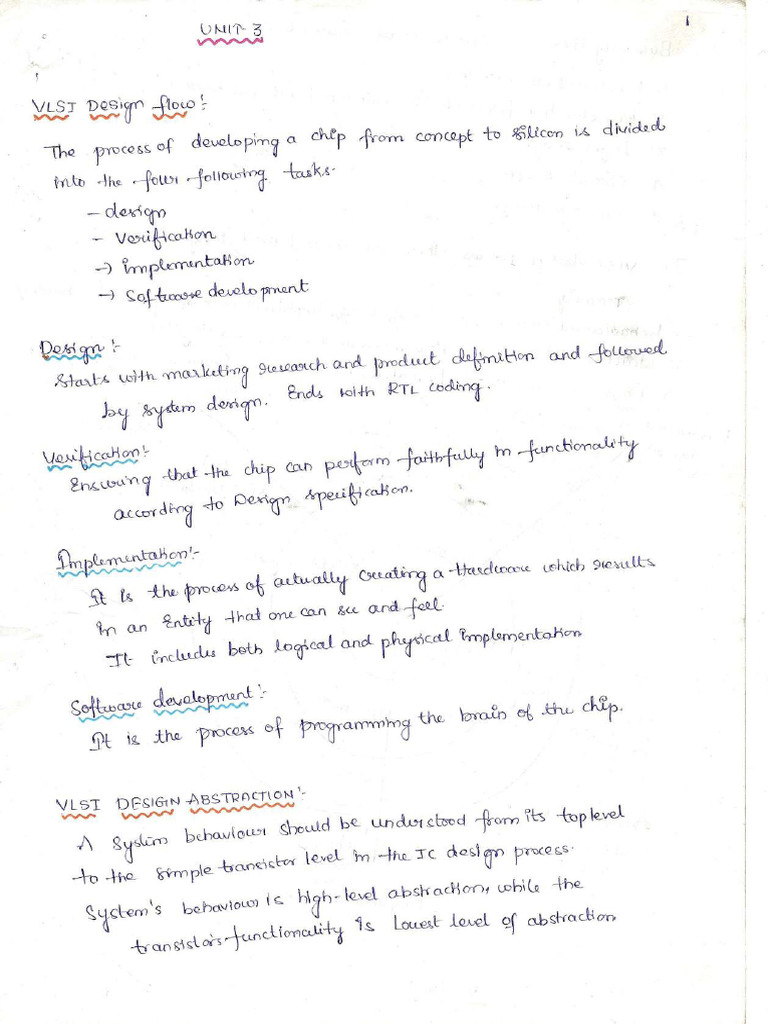 UNIT 3
1
VLSI Design flow:-
The process of developing a chip from concept to silicon is divided
into the four following tasks.
- design
- Verification
→ implementation
→ Software development
Design :-
Starts with marketing research and product definition and followed
by system design. Ends with RTL coding.
Verification:-
Ensuring that the chip can perform faithfully in functionality
according to Design specification.
Implementation:-
It is the process of actually creating a Hardware which results
in an Entity that one can see and feel.
It includes both logical and physical implementation
Software development:-
It is the process of programming the brain of the chip.
VLSI DESIGN ABSTRACTION:-
A System behaviour should be understood from its top level
to the simple transistor level in the IC design process.
System's behaviour is high-level abstraction, while the
transistors functionality is Lowest level of abstraction